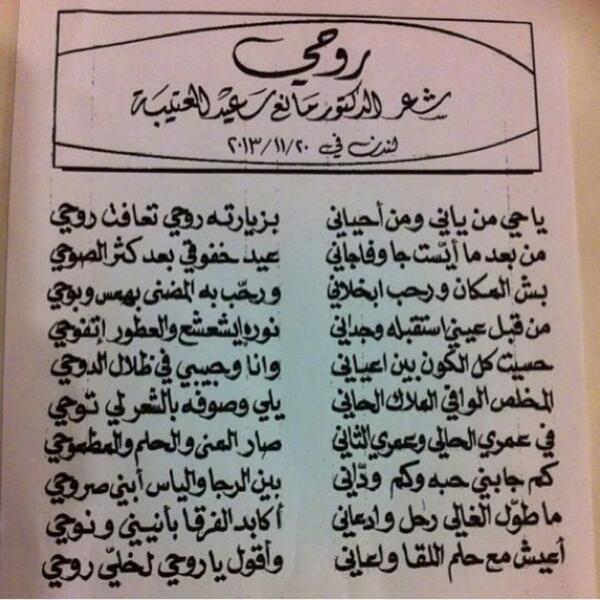 روحي
شعر الدكتور مانع سعيد العتيبة
لندن في ٢٠١٣/١١/٢٠
ياحي من ياني ومن أحياني بزيارته روحي تعافت روحي
من بعد ما أيّست جا وفاجاني عيد خفوقي بعد كثر الصوحي
بش المكان ورحب ابخلاني ورحّب به المضنى بهمس وبوحي
من قبل عيني استقبله وجداني نوره إيشعشع والعطور إتفوحي
حسيت كل الكون بين اعياني وانا وحبيبي في ظلال الدوحي
المخلص الوافي الملاك الحاني يلي وصوفه بالشعر لي توحي
في عمري الحالي وعمري الثاني صار المنى والحلم والمطموحي
كم جابني حبه وكم ودّاني بين الرجا والياس أبني صروحي
ما طوّل الغالي رحل وادعاني أكابد الفرقا بأنيني ونوحي
أعيش مع حلم اللقا ولعاني وأقول ياروحي لخلّي روحي